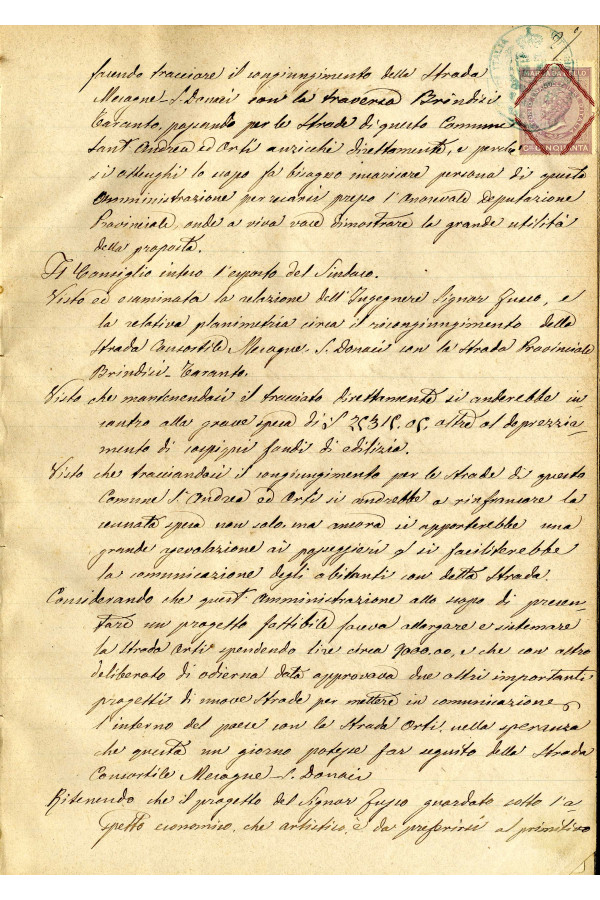 facendo tracciare il congiungimento della Strada
Mesagne - S. Donaci con la traversa Brindisi
Taranto, passando per le Strade di questo Comune
Sant'Andrea ed Orti anzicchè direttamente, e perchè
si ottenghi lo scopo fa bisogno inviare persona di questa
Amministrazione per recarsi presso l'Onorevole Deputazione
Provinciale, onde a viva voce dimostrare la grande utilità
della proposta.
Il Consiglio inteso l'esposto del Sindaco.
Visto ed esaminata la relazione dell'Ingegnere Signor Fusco, e
la relativa planimetria circa il ricongiungimento della
Strada Consortile Mesagne, S. Donaci con la Strada Provinciale
Brindisi - Taranto.
Visto che mantenendosi il tracciato direttamente si anderebbe in
contro alla grave spesa di oltre al deprezzia-
mento di cospicui fondi di edilizia.
Visto che tracciandosi il congiungimento per le Strade di questo
Comune S. Andrea ed Orti si andrebbe a rinfrancare la
cennata spesa non solo, ma ancora si apporterebbe una
grande agevolazione ai passeggieri e si faciliterebbe
la comunicazione degli abitanti con detta Strada.
Considerando che quest'Amministrazione allo scopo di presen-
tare un progetto fattibile faceva allargare e sistemare
la Strada Orti spendendo lire circa 9000,00, e che con altro
deliberato di odierna data approvava due altri importanti
progetti di nuove Strade per mettere in comunicazione
l'interno del paese con la Strada Orti, nella speranza
che questa un giorno potesse far seguito della Strada
Consortile Mesagne - S. Donaci
Ritenendo che il progetto del Signor Fusco guardato sotto l'a
spetto economico, che artistico, è da preferirsi al primitivo
MARCA DA BOLLO
CMI CINQUANTA